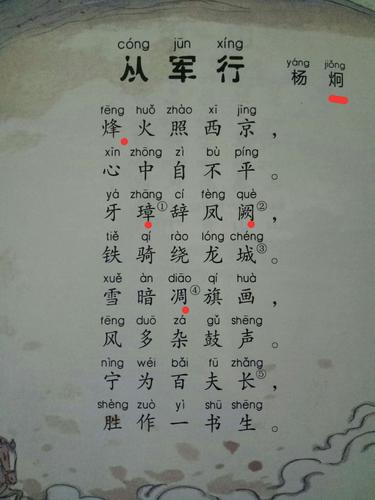 cóng jūn xíng
从军行
yáng jiǒng
杨炯
fēng huǒ zhào xī jīng
烽火照西京，
xīn zhōng zì bù píng
心中自不平。
yá zhāng cí fèng què
牙璋①辞凤阙②，
tiě qí rào lóng chéng
铁骑绕龙城③。
xuě àn diāo qí huà
雪暗凋④旗画，
fēng duō zá gǔ shēng
风多杂鼓声。
nìng wéi bǎi fū zhǎng
宁为百夫长⑤，
shèng zuò yì shū shēng
胜作一书生。